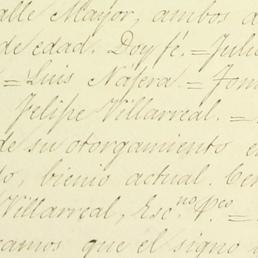 alle Mayor, ambos a
de edad. Doy fé. = Julio
= Luis Nafera = Tom
Felipe Villarreal. =
de su otorgamiento en
o, bienio actual. Cer
Villarreal, Esc.no P.co =
camos que el signo